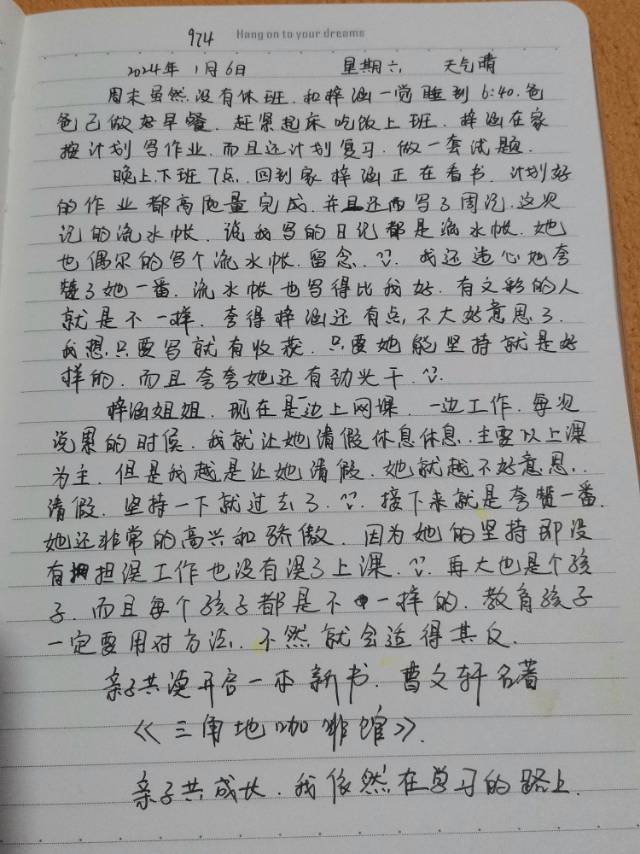 974
Hang on to your dreams
2024年1月6日 星期六 天气晴
周末虽然没有休班.和梓涵一觉睡到6:40.爸
爸已做好早餐.赶紧起床吃饭上班.梓涵在家
按计划写作业.而且还计划复习.做一套试题.
晚上下班7点.回到家梓涵正在看书.计划好
的作业都高质量完成.并且还而写了周记.这次
记的流水帐.说我写的日记都是流水帐.她
也偶尔的写个流水帐.留念.我还违心她夸
赞了她一番.流水帐也写得比我好.有文彩的人
就是不一样.夸得梓涵还有点.不大好意思了.
我想.只要写就有收获.只要她能坚持就是好
样的.而且夸夸她还有劲头干.
梓涵姐姐.现在是一边上网课.一边工作.每次
说累的时候.我就让她请假休息休息.主要以上课
为主.但是我越是让她请假.她就越不好意思.
请假.坚持一下就过去了.接下来就是夸赞一番.
她还非常的高兴和骄傲.因为她的坚持即没
有担误工作也没有误了上课.再大也是个孩
子.而且每个孩子都是不一样的.教育孩子
一定要用对方法.不然就会适得其反.
亲子共读开启一本新书.曹文轩名著
《三角地咖啡馆》.
亲子共成长.我依然在学习的路上.